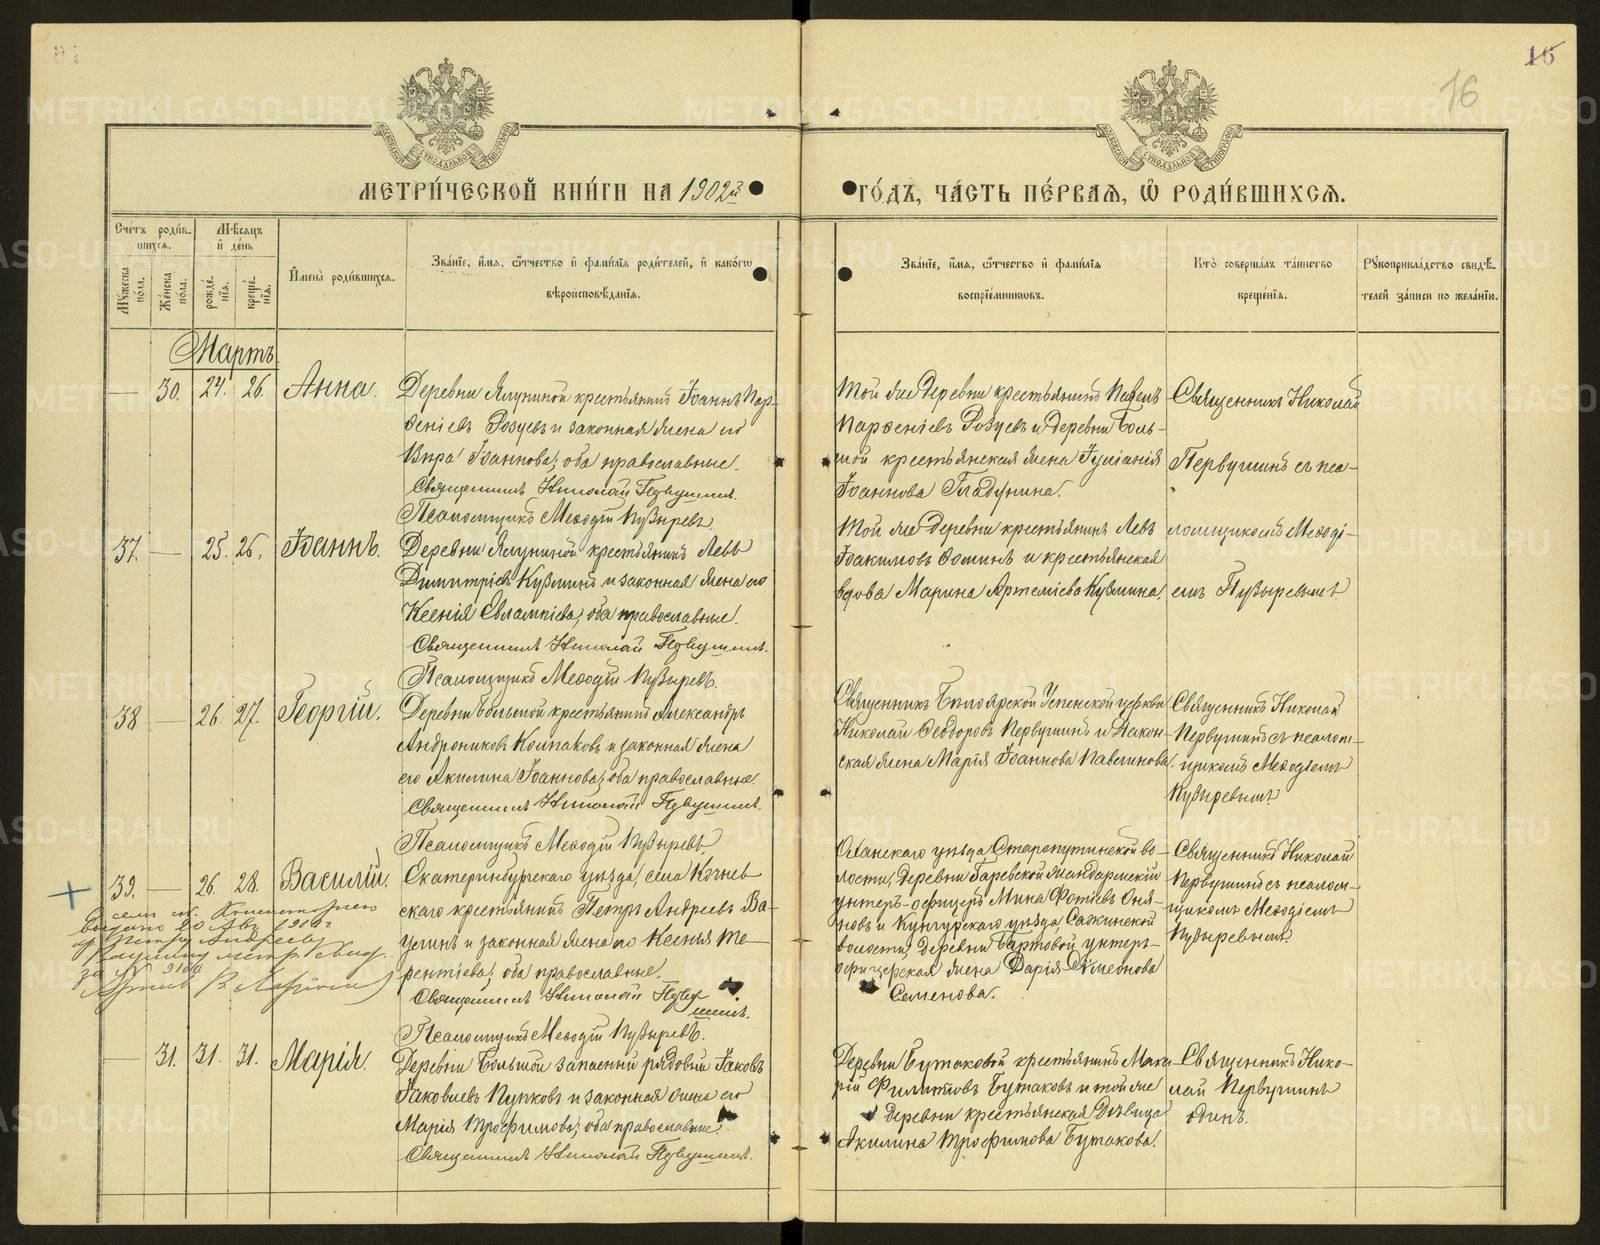 16
16
МЕТРИЧЕСКОЙ КНИГИ НА 1902й
ГОДЪ, ЧАСТЬ ПЕРВАЯ, Ѡ РОДИВШИХСЯ.
Счетъ родив-
шихся.
Мѣсяцъ
и день
Мужеска
пола.
Женска
пола.
рожде-
нія.
креще-
нія.
Имена родившихся.
Званіе, имя, ѿчество и фамилія родителей, и какогѡ
вѣроисповѣданія.
Званіе, имя, ѿчество и фамилія
воспріемниковъ.
Кто совершалъ таинство
крещенія.
Рукоприкладство свидѣ-
телей записи по желанію.
Мартъ.
— 30. 24. 26. Анна.
Деревни Ялуниной крестьянинъ Іоаннъ Пар-
ѳеніевъ Розуевъ и законная жена его
Вѣра Іоаннова; оба православные.
Священникъ Николай Первушинъ.
Псаломщикъ Меѳодій Пузыревъ.
Той же деревни крестьянинъ Павелъ
Парѳеніевъ Розуевъ и деревни Боль-
шой крестьянская жена Іуліанія
Іоаннова Гладунина.
Священникъ Николай
Первушинъ съ пса-
ломщикомъ Меѳоді-
емъ Пузыревымъ
37. — 25. 26. Іоаннъ.
Деревни Ялуниной крестьянинъ Левъ
Димитріевъ Кузминъ и законная жена его
Ксенія Евлампіева; оба православные.
Священникъ Николай Первушинъ.
Псаломщикъ Меѳодій Пузыревъ.
Той же деревни крестьянинъ Левъ
Іоакимовъ Ѳоминъ и крестьянская
вдова Марина Артеміева Кузмина.
38 — 26. 27. Георгій.
Деревни Большой крестьянинъ Александръ
Андрониковъ Колпаковъ и законная жена
его Акилина Іоаннова; оба православные
Священникъ Николай Первушинъ.
Псаломщикъ Меѳодій Пузыревъ
Священникъ Бѣлоярской Успенской церкви
Николай Ѳеодоровъ Первушинъ и діакон-
ская жена Марія Іоаннова Павлинова.
Священникъ Николай
Первушинъ съ псалом-
щикомъ Меѳодіемъ
Пузыревымъ
39. — 26. 28. Василій.
Екатеринбургскаго уѣзда, села Кочнев-
скаго крестьянинъ Петръ Андреевъ Ва-
улинъ и законная жена его Ксенія Те-
рентіева; оба православные.
Священникъ Николай Перву-
шинъ.
Псаломщикъ Меѳодій Пузыревъ.
Оханскаго уѣзда, Старопутинской во-
лости, деревни Гаревской жандармскій
унтеръ-офицеръ Мина Фотіевъ
и Кунгурскаго уѣзда, Сажинской
волости, деревни Бартовой унтеръ-
офицерская жена Дарія Симеонова
Семенова.
Священникъ Николай
Первушинъ съ псалом-
щикомъ Меѳодіемъ
Пузыревымъ
— 31. 31. 31. Марія.
Деревни Большой запасный рядовой Іаковъ
Іаковлевъ Пупковъ и законная жена его
Марія Трофимова; оба православные
Священникъ Николай Первушинъ.
Деревни Бутаковой крестьянинъ Мака-
рій Филипповъ Бутаковъ и той же
деревни крестьянская дѣвица
Акилина Трофимова Бутакова.
Священникъ Нико-
лай Первушинъ
одинъ.